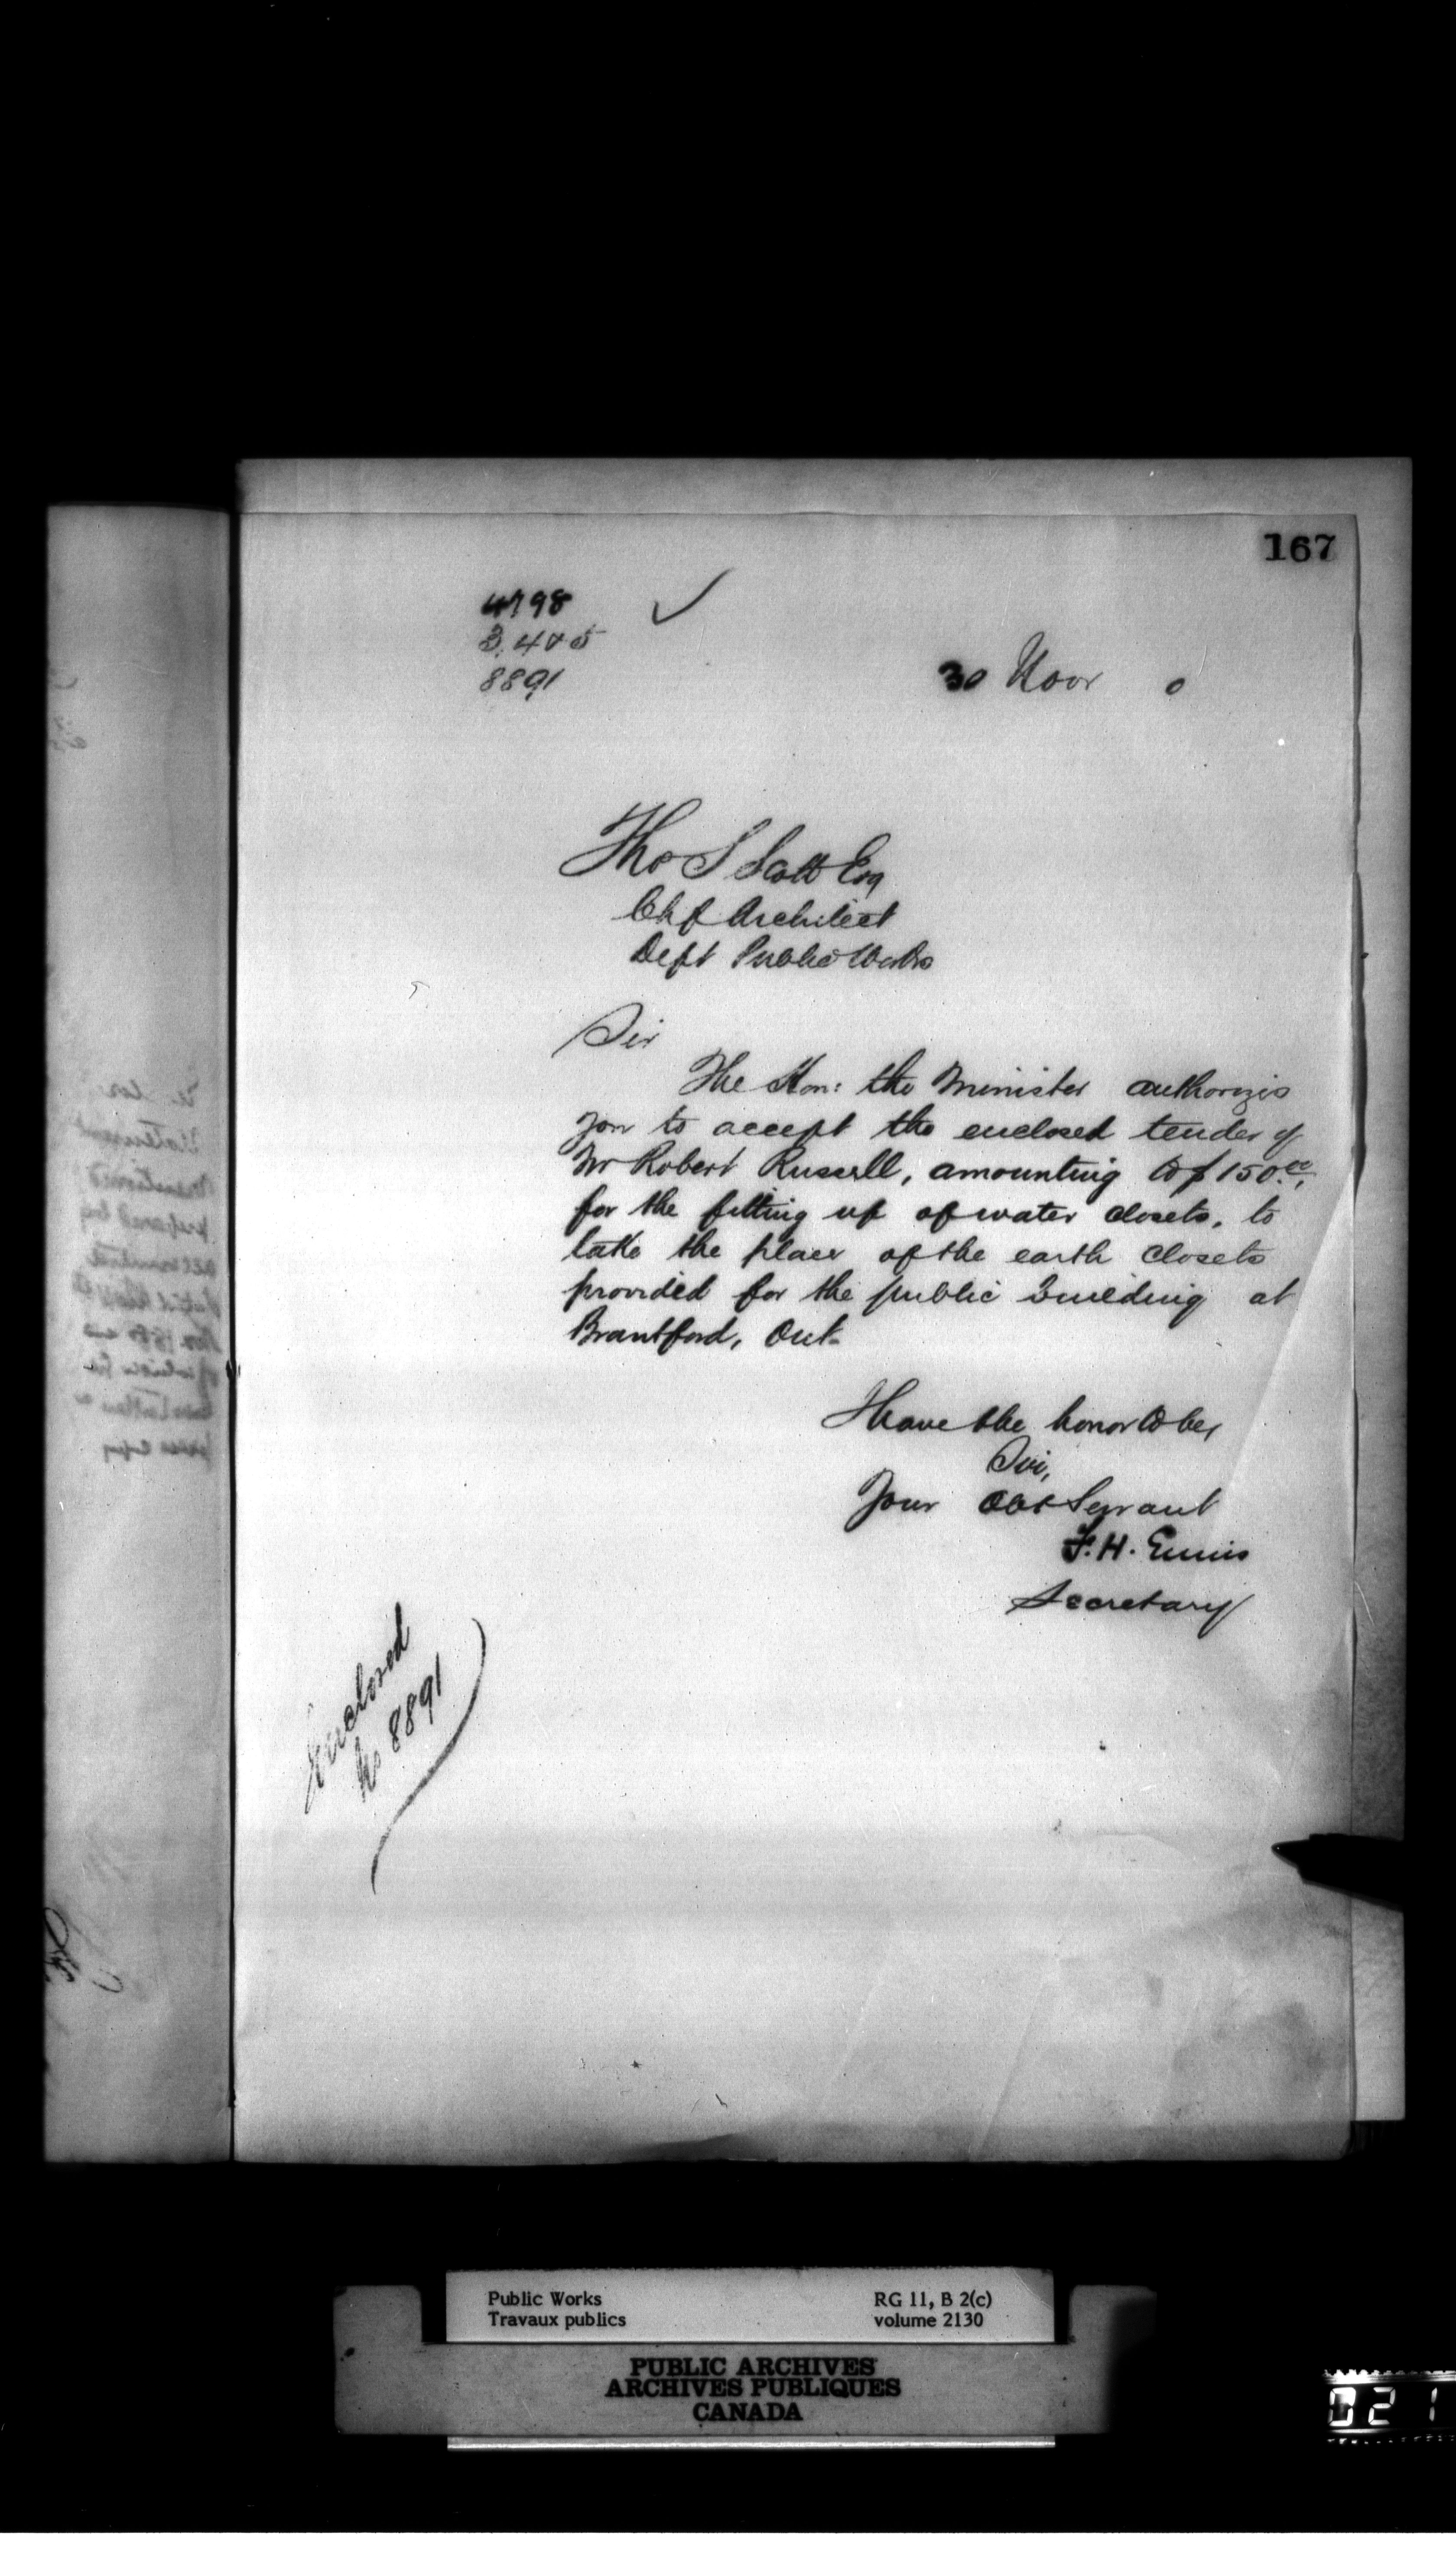 167
4798
8891
30 Novr 0
Thos S Scott Esq
Chf Architect
Dept Public Works
Sir
The Hon: the Minister authorizes
you to accept the enclosed tender of
Mr Robert Russell, amounting to $150.00,
for the fitting up of water closets, to
take the place of the earth closets
provided for the public building at
Brantford, Ont.
I have the honor to be,
Sir,
Your Obt Servant
F. H. Ennis
Secretary
Enclosed
No 8891
Public Works
Travaux publics
RG 11, B 2(c)
volume 2130
PUBLIC ARCHIVES
ARCHIVES PUBLIQUES
CANADA
021